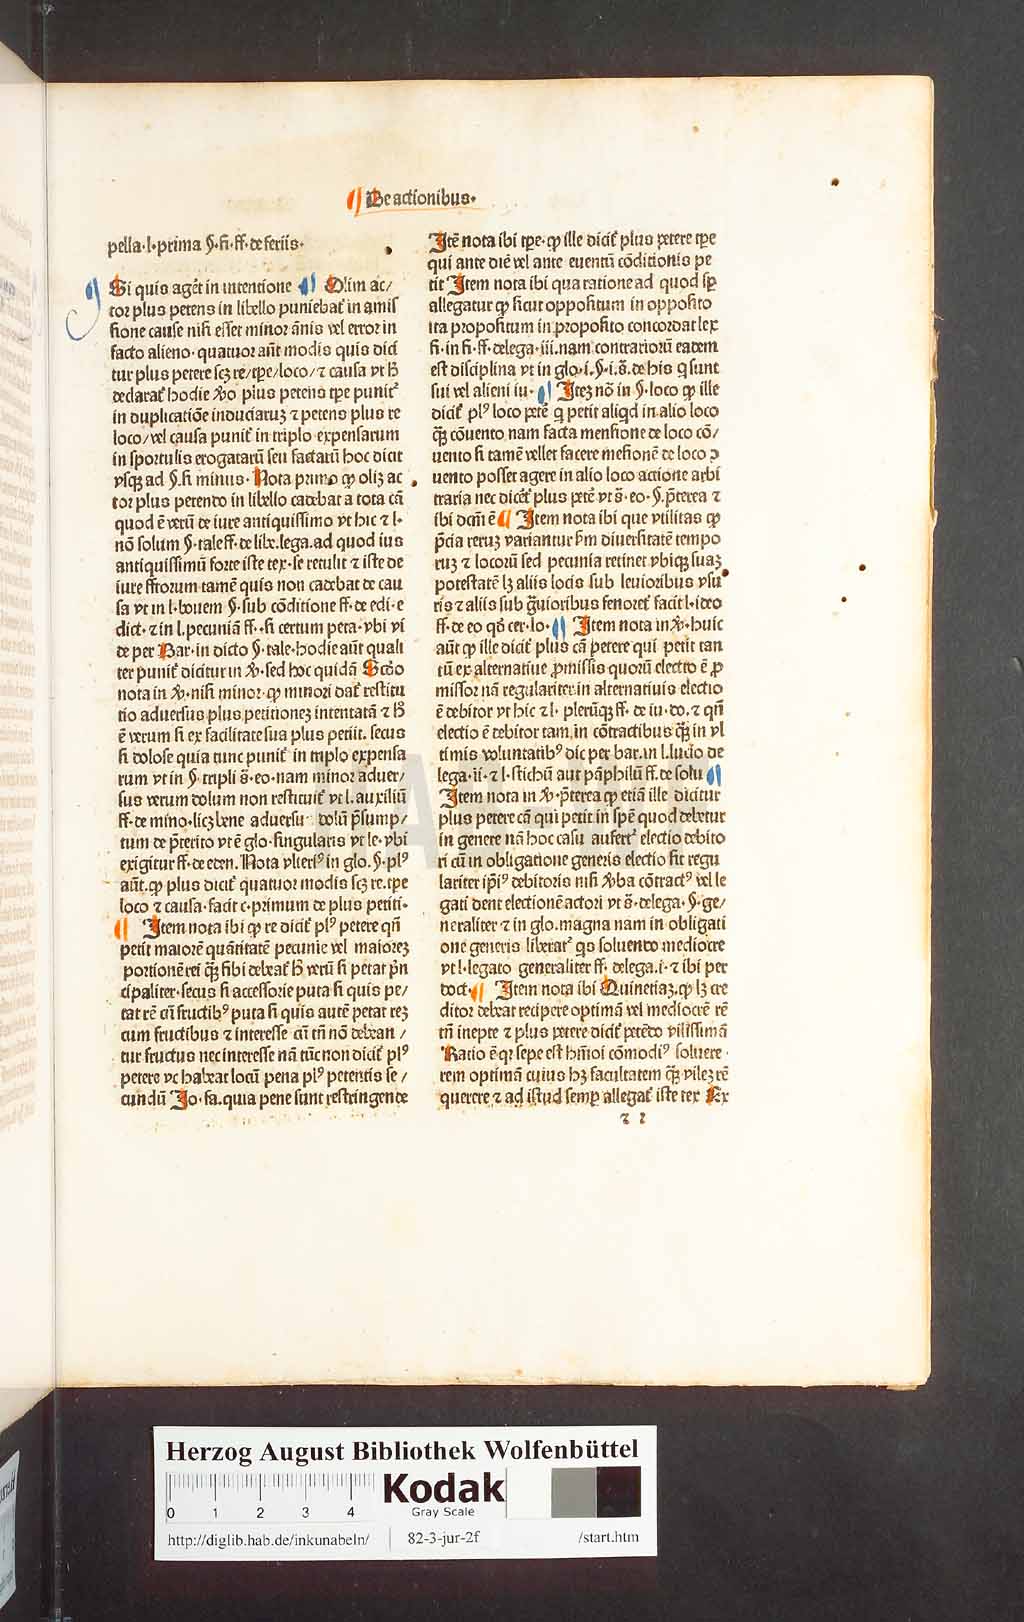 De actionibus.
pella·l·prima §·fi·ff·de feriis·
Si quis agẽt in intentione Olim ac/
tor plus petens in libello puniebat᷑ in amis
sione cause nisi esset minor ãnis vel error in
facto alieno· quatuor aũt modis quis dicit᷑
tur plus petere scꝫ re/tp̃e/loco/⁊ causa vt h̃
declarat᷑ hodie ꝟo plus petens tp̃e punit᷑
in duplicatiõe induciaruꝫ ⁊ petens plus re
loco/vel causa punit᷑ in triplo expensarum
in sportulis erogatarũ seu factarũ hoc dicit
vsqꝫ ad §·si minus· Nota primo ꝙ oliꝫ ac
tor plus petendo in libello cadebat a tota cã
quod ẽ verũ de iure antiquissimo vt hic ⁊ l·
nõ solum §·tale ff·de lib̃e.lega.ad quod ius
antiquissimũ forte iste tex·se retulit ⁊ iste de
iure ff̃torum tamẽ quis non cadebat de cau
sa vt in l·bouem §·sub cõditione ff·de edi·e
dict·⁊ in l.pecuniã ff··si certum peta·vbi vi
de per Bar·in dicto §·tale·hodie aũt quali
ter punit᷑ dicitur in ꝟ·sed hoc quidã Scd̃o
nota in ꝟ·nisi minor·ꝙ minori dat᷑ restitu
tio aduersus plus petitioneꝫ intentatã ⁊ h̃
ẽ verum si ex facilitate sua plus petiit. secus
si dolose quia tunc punit᷑ in triplo expensa
rum vt in §·tripli s̃·eo·nam minor aduer/
sus verum dolum non restituit᷑ vt l·auxiliũ
ff·de mino·licꝫ bene aduersuꝫ dolũ p̃sump/
tum de p̃terito vt ẽ glo·singularis vt le·vbi
exigitur ff·de eden. Nota vlteriꝰ in glo.§·plꝰ
aũt.ꝙ plus dicit᷑ quatuor modis scꝫ re.tp̃e
loco ⁊ causa·facit c·primum de plus petiti·
Item nota ibi ꝙ re dicit᷑ plꝰ petere qñ
petit maiorẽ quãtitatẽ pecunie vel maioreꝫ
portionẽ rei q̃ꝫ sibi debeat᷑ h̃ verũ si petat p̃n
cipaliter·secus si accessorie puta si quis pe/
tat rẽ cũ fructibꝰ puta si quis autẽ petat reꝫ
cum fructibus ⁊ interesse cũ tñ nõ debean/
tur fructus nec interesse nã tũc non dicit᷑ plꝰ
petere vt habeat locũ pena plꝰ petentis se/
cundũ Jo·fa.quia pene sunt restringende
Itẽ nota ibi tp̃e·ꝙ ille dicit᷑ plus petere tp̃e
qui ante diẽ vel ante euentũ cõditionis pe
tit Item nota ibi qua ratione ad quod sp̃
allegatur ꝙ sicut oppositum in opposito
ita propositum in proposito concordat lex
fi·in fi·ff·delega·iii.nam contrariorũ eadem
est disciplina vt in glo·i.§·i.s̃.de his q̃ sunt
sui vel alieni iu· Iteꝫ nõ in §·loco ꝙ ille
dicit᷑ plꝰ loco petẽ q̃ petit aliqd̃ in alio loco
q̃ꝫ cõuento nam facta mensione de loco cõ/
uento si tamẽ vellet facere mẽsionẽ de loco ꝯ
uento posset agere in alio loco actione arbi
traria nec dicet᷑ plus petẽ vt s̃·eo·§·p̃terea ⁊
ibi dcm̃ ẽ Item nota ibi que vtilitas ꝙ
p̃cia reruꝫ variantur sm̃ diuersitatẽ tempo
ruꝫ ⁊ locorũ sed pecunia retinet vbiqꝫ suaꝫ
potestatẽ lꝫ aliis locis sub leuioribus vsu
ris ⁊ aliis sub g̃uioribus fenoret᷑ facit l·ideo
ff·de eo qd̃ cer·lo· Item nota in ꝟ·huic
aũt ꝙ ille dicit᷑ plus cã petere qui petit tan
tũ ex alternatiue ꝓmissis quorũ electio ẽ ꝓ
missor nã regulariter in alternatiuis electio
ẽ debitor vt hic ⁊ l·plerũqꝫ ff·de iu·do.⁊ qñ
electio ẽ debitor tam in cõtractibus q̃ꝫ in vl
timis voluntatibꝰ dic per bar.in l.lucio de
lega·ii·⁊ l·stichũ aut pãphilũ ff.de solu
Item nota in ꝟ·p̃terea ꝙ etiã ille dicitur
plus petere cã qui petit in sp̃e quod debetur
in genere nã hoc casu aufert᷑ electio debito
ri cũ in obligatione generis electio sit regu
lariter ip̃iꝰ debitoris nisi ꝟba cõtractꝰ vel le
gati dent electionẽ actori vt s̃·delega·§·ge/
neraliter ⁊ in glo.magna nam in obligati
one generis liberat᷑ q̃s soluendo mediocre
vt l·legato generaliter ff·delega.i·⁊ ibi per
doct· Item nota ibi Quinetiaꝫ.ꝙ lꝫ cre
ditor debeat recipere optimã vel mediocrẽ rẽ
tñ inepte ⁊ plus petere dicit᷑ petẽdo vilissimã
Ratio ẽ qꝛ sepe est hm̃oi cõmodiꝰ soluere
rem optimã cuius hꝫ facultatem q̃ꝫ vileꝫ rẽ
querere ⁊ ad istud semp̱ allegat᷑ iste tex Ex
⁊ 2
Herzog August Bibliothek Wolfenbüttel
0 1 2 3 4
Kodak
Gray Scale
http://diglib.hab.de/inkunabeln/ 82-3-jur-2f /start.htm